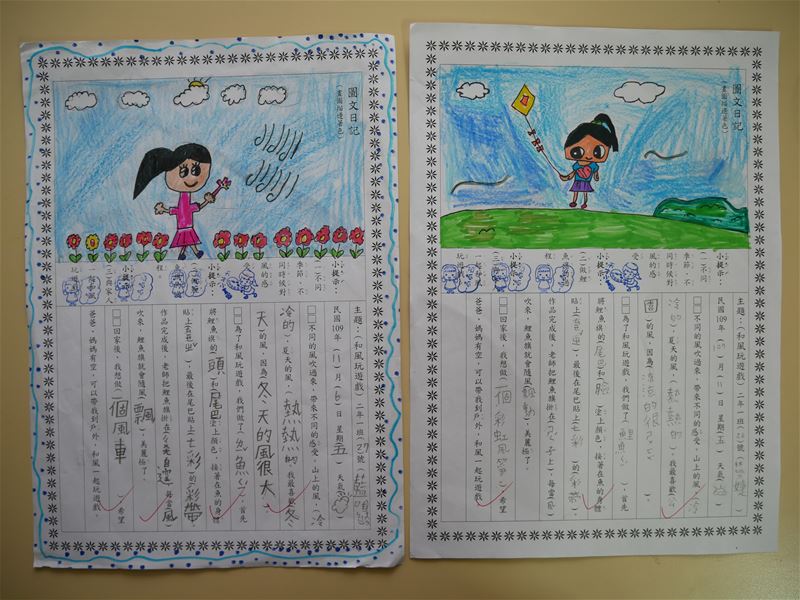 圖文日記
(畫圖描邊著色)
小提示：
一、不同
季節、不
同時候對
風的感
小提示：
程。
小提示：
(三)與家人
一起和風
玩遊
主題：(和風玩遊戲) 二年一班(27)號
民國109年(11)月(6)日 星期(五) 天氣
□□不同的風吹過來，帶來不同的感受。山上的風，(冷
冷的)，夏天的風，(熱熱的)，我最喜歡(冬
天)的風，因為(冬天的風很大)
□□為了和風玩遊戲，我們做了(鯉魚旗)，首先
將鯉魚旗的(頭)和(尾巴)塗上顏色，接著在魚的身體
貼上，最後在尾巴貼上(七彩)的(彩帶)
作品完成後，老師把鯉魚旗掛在，每當(風)
吹來，鯉魚旗就會隨風(飄)，美麗極了。
□□回家後，我想做(一個風車)，希望
爸爸、媽媽有空，可以帶我到戶外，和風一起玩遊戲。
圖文日記
(畫圖描邊著色)
小提示：
一、不同
季節、不
同時候對
風的感
受
小提示：
(二)做鯉
魚旗的過
程
小提示：
(三)與家人
一起和風
玩遊
主題：(和風玩遊戲) 二年一班
民國109年月日 星期(五) 天氣
□□不同的風吹過來，帶來不同的感受。山上的風(冷
冷的)，夏天的風，(熱熱的)，我最喜歡
的風，因為
□□為了和風玩遊戲，我們做了(鯉魚)，首先
將鯉魚旗的(尾巴)和(臉)塗上顏色，接著在魚的身體
貼上，最後在尾巴貼上(七彩)的(彩帶)
作品完成後，老師把鯉魚旗掛在，每當(風)
吹來，鯉魚旗就會隨風(飄動)，美麗極了。
□□回家後，我想做(一個彩虹風箏)，希望
爸爸、媽媽有空，可以帶我到戶外，和風一起玩遊戲。